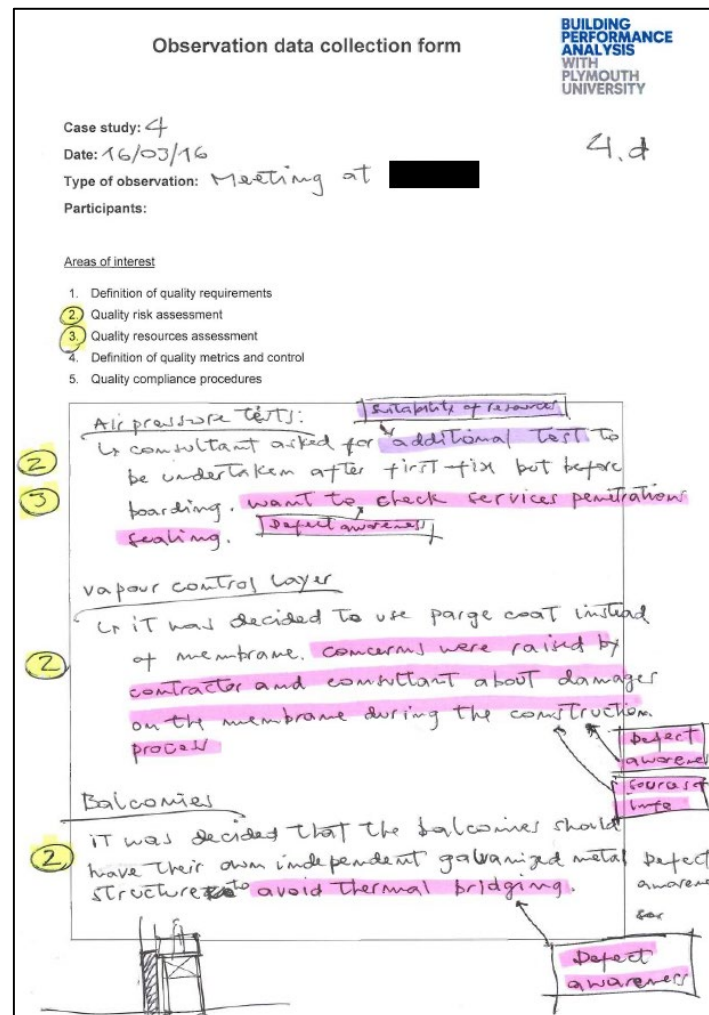 Observation data collection form
BUILDING
PERFORMANCE
ANALYSIS
WITH
PLYMOUTH
UNIVERSITY
Case study: 4
Date: 16/03/16
4.d
Type of observation: Meeting at
Participants:
Areas of interest
1. Definition of quality requirements
2. Quality risk assessment
3. Quality resources assessment
4. Definition of quality metrics and control
5. Quality compliance procedures
Air pressure tests:
suitability of resources
2
↳ consultant asked for additional test to
be undertaken after first-fix but before
3
boarding. want to check services penetrations
sealing.
Defect awareness
vapour control layer
↳ it was decided to use parge coat instead
2
of membrane. concerns were raised by
contractor and consultant about damages
on the membrane during the construction
process
Defect
awarenes
sources of
info
Balconies
it was decided that the balconies should
2
have their own independent galvanized metal
structure to avoid thermal bridging.
Defect
awarene
Defect
awareness